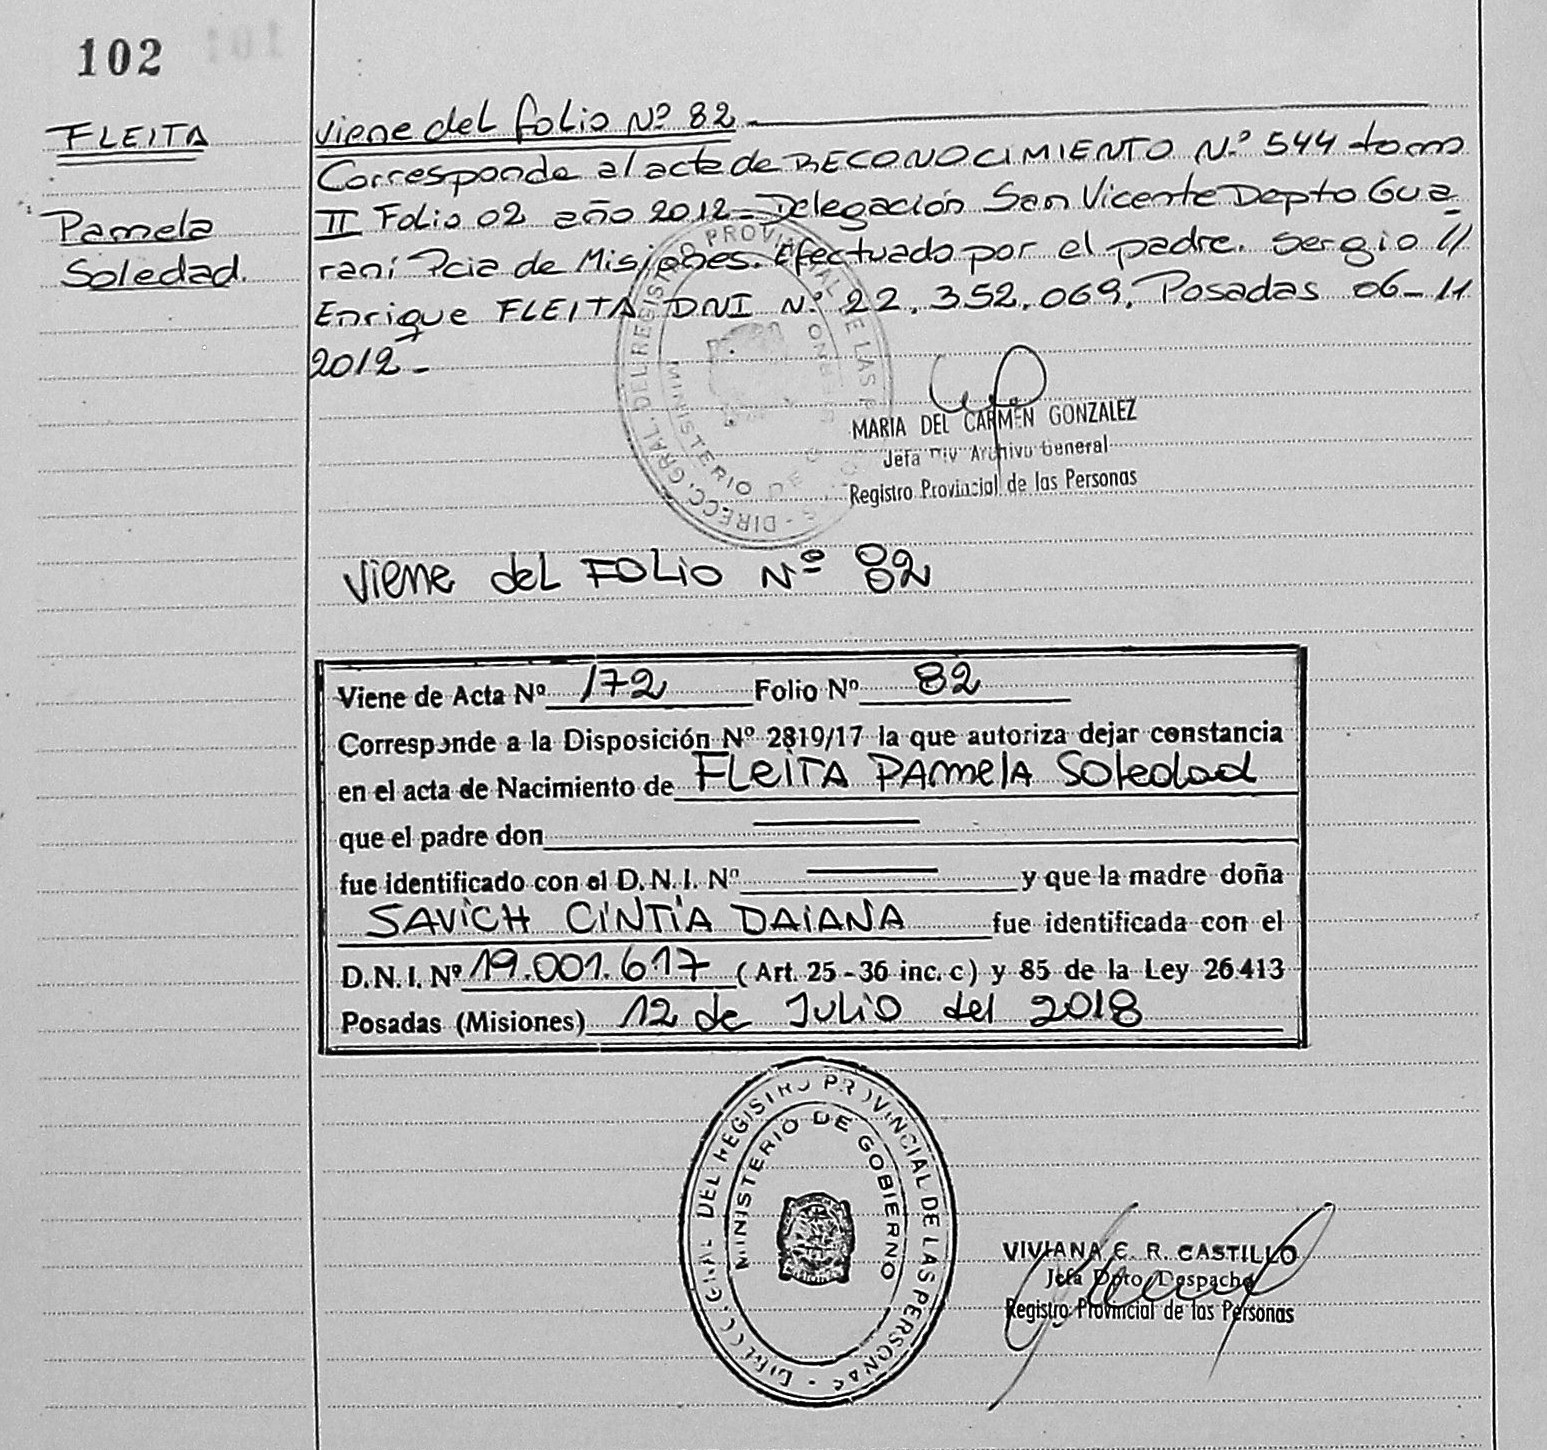 102
FLEITA
Pamela
Soledad.
Viene del folio Nº 82
Corresponde al acta de RECONOCIMIENTO Nº 544 tomo
II Folio 02 año 2012 - Delegación San Vicente Depto Gua
raní Pcia de Misiones. Efectuado por el padre. Sergio //
Enrique FLEITA DNI Nº 22.352.069. Posadas 06-11
2012-
DIRECC. GRAL. DEL REGISTRO PROVINCIAL DE LAS
MINISTERIO DE GOBIERNO
MARIA DEL CARMEN GONZALEZ
Jefa Div Archivo General
Registro Provincial de las Personas
Viene del FOLIO Nº 82
Viene de Acta Nº 172 Folio Nº 82
Corresponde a la Disposición Nº 2819/17 la que autoriza dejar constancia
en el acta de Nacimiento de FLEITA PAMELA Soledad
que el padre don
fue identificado con el D.N.I. Nº y que la madre doña
SAVICH CINTIA DAIANA fue identificada con el
D.N.I. Nº 19.001.617 (Art. 25-36 inc. c) y 85 de la Ley 26.413
Posadas (Misiones) 12 de JULIO del 2018
DIRECC. GRAL DEL REGISTRO PROVINCIAL DE LAS PERSONAS
MINISTERIO DE GOBIERNO
VIVIANA C. R. CASTILLO
Jefa Dpto Despacho
Registro Provincial de las Personas